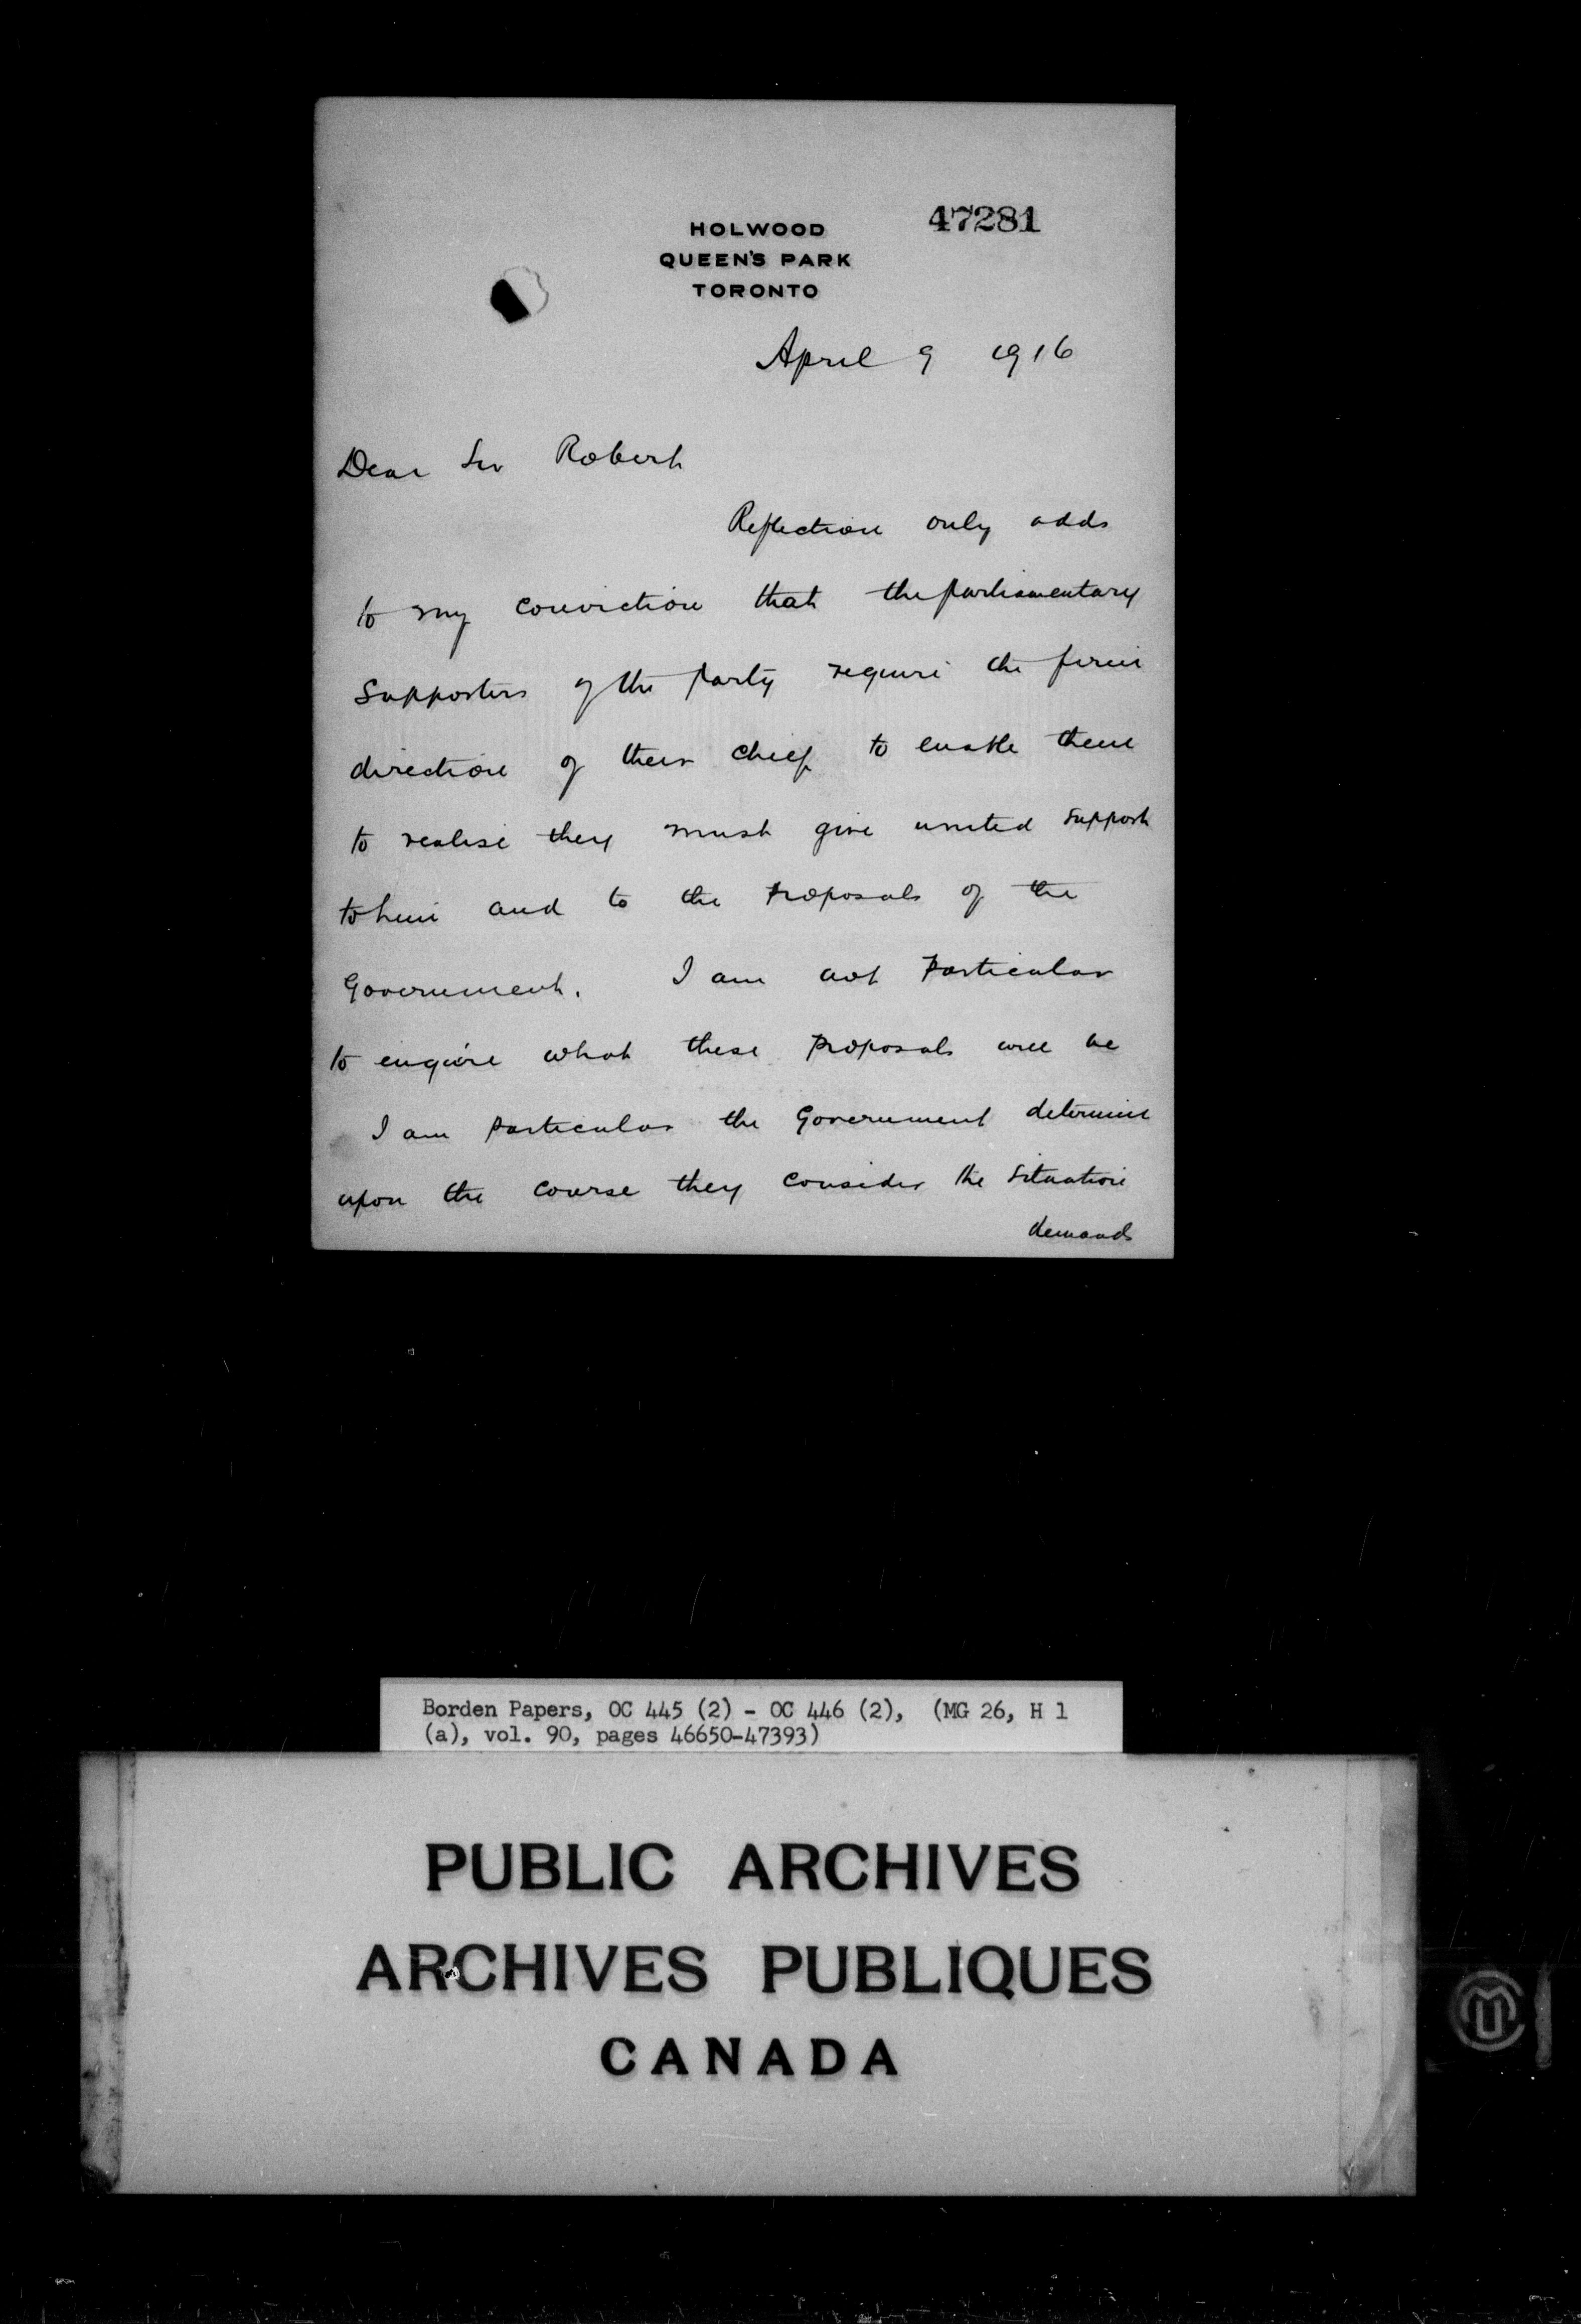 47281
HOLWOOD
QUEEN'S PARK
TORONTO
April 9 1916
Dear Sir Robert
Reflection only adds
to my conviction that the parliamentary
Supporters of the party require the firm
direction of their chief to enable them
to realise they must give united support
to him and to the proposals of the
Government. I am not particular
to enquire what these proposals will be
I am particular the Government determine
upon the course they consider the situation
demands
Borden Papers, OC 445 (2) - OC 446 (2), (MG 26, H 1
(a), vol. 90, pages 46650-47393)
PUBLIC ARCHIVES
ARCHIVES PUBLIQUES
CANADA